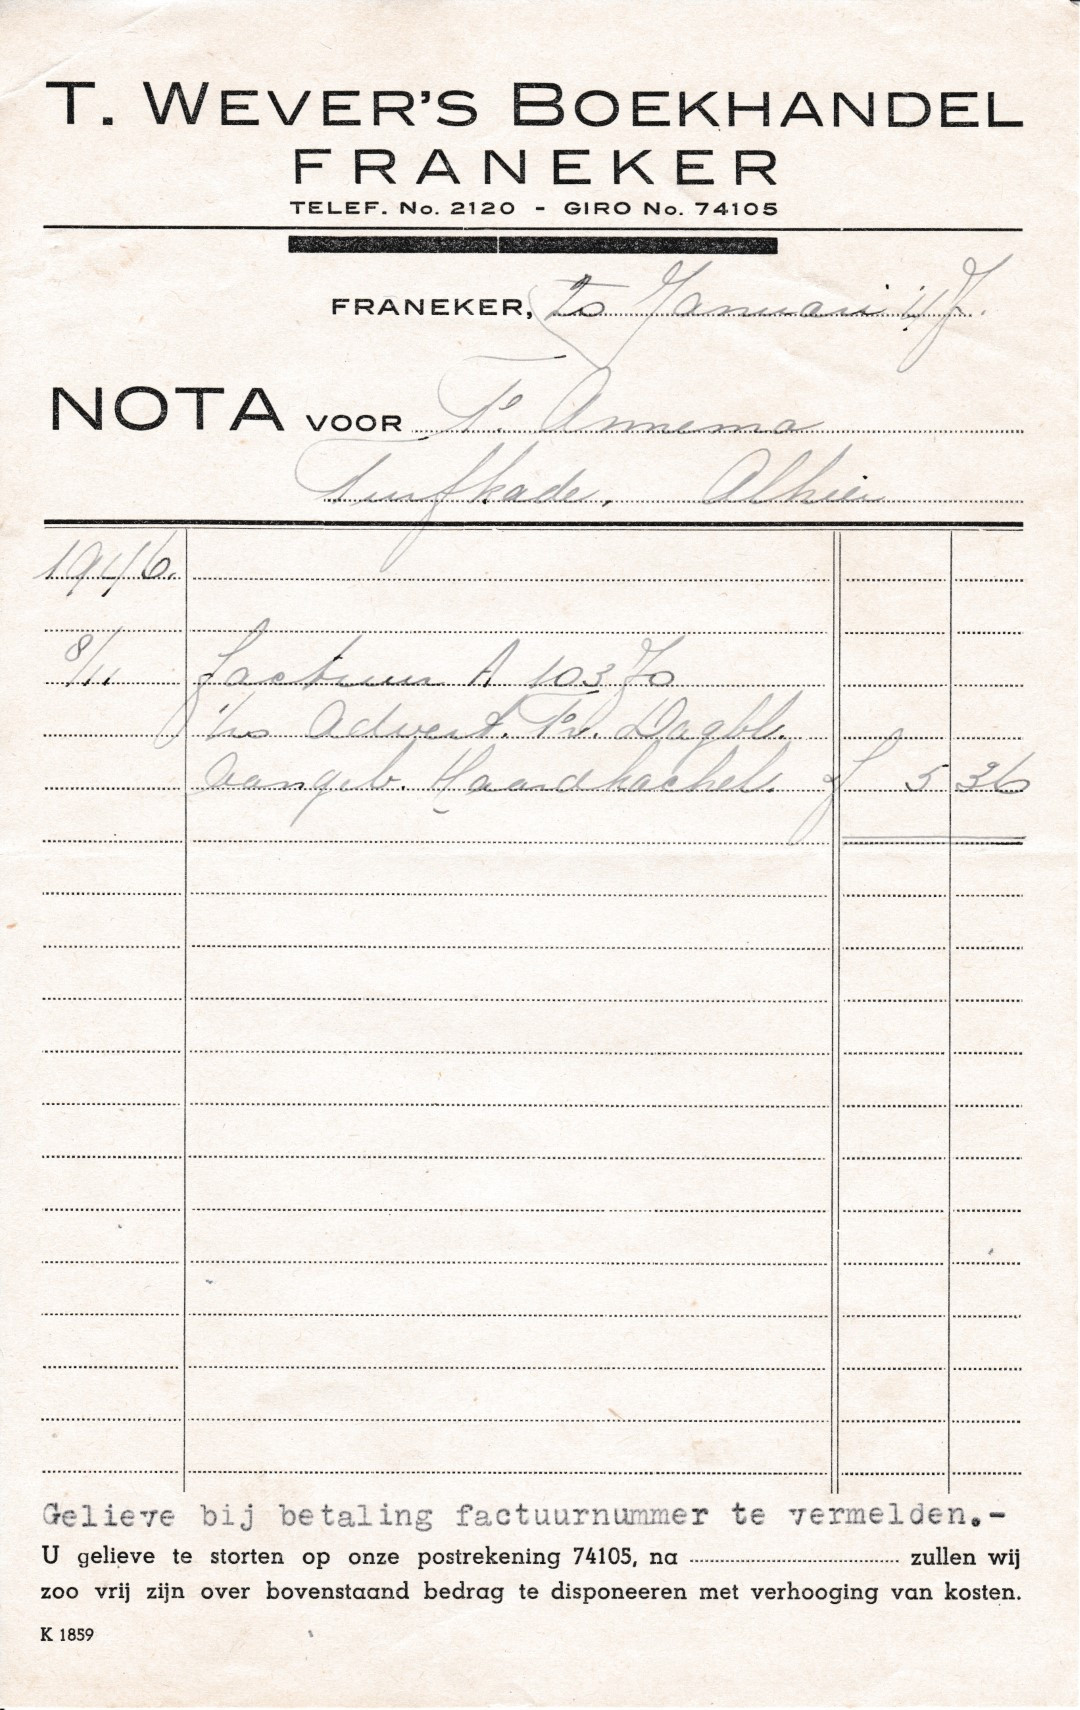 T. WEVER'S BOEKHANDEL
FRANEKER
TELEF. No. 2120 - GIRO No. 74105
FRANEKER, Januari 47.
NOTA VOOR Annema
Turfkade, Alhier
1946.
8/11 factuur A 10370
Advert. Dagbl.
Haardkachel. f 5 36
Gelieve bij betaling factuurnummer te vermelden.-
U gelieve te storten op onze postrekening 74105, na .......... zullen wij
zoo vrij zijn over bovenstaand bedrag te disponeeren met verhooging van kosten.
K 1859